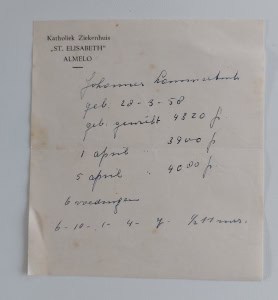 Katholiek Ziekenhuis
„ST. ELISABETH”
ALMELO
Johannes
geb. 28-3-58
geb. gewicht 4320 gr
1 april „ 3900 gr
5 april „ 4080 gr
6 voedingen
6 - 10 - 1 - 4 - 7 -